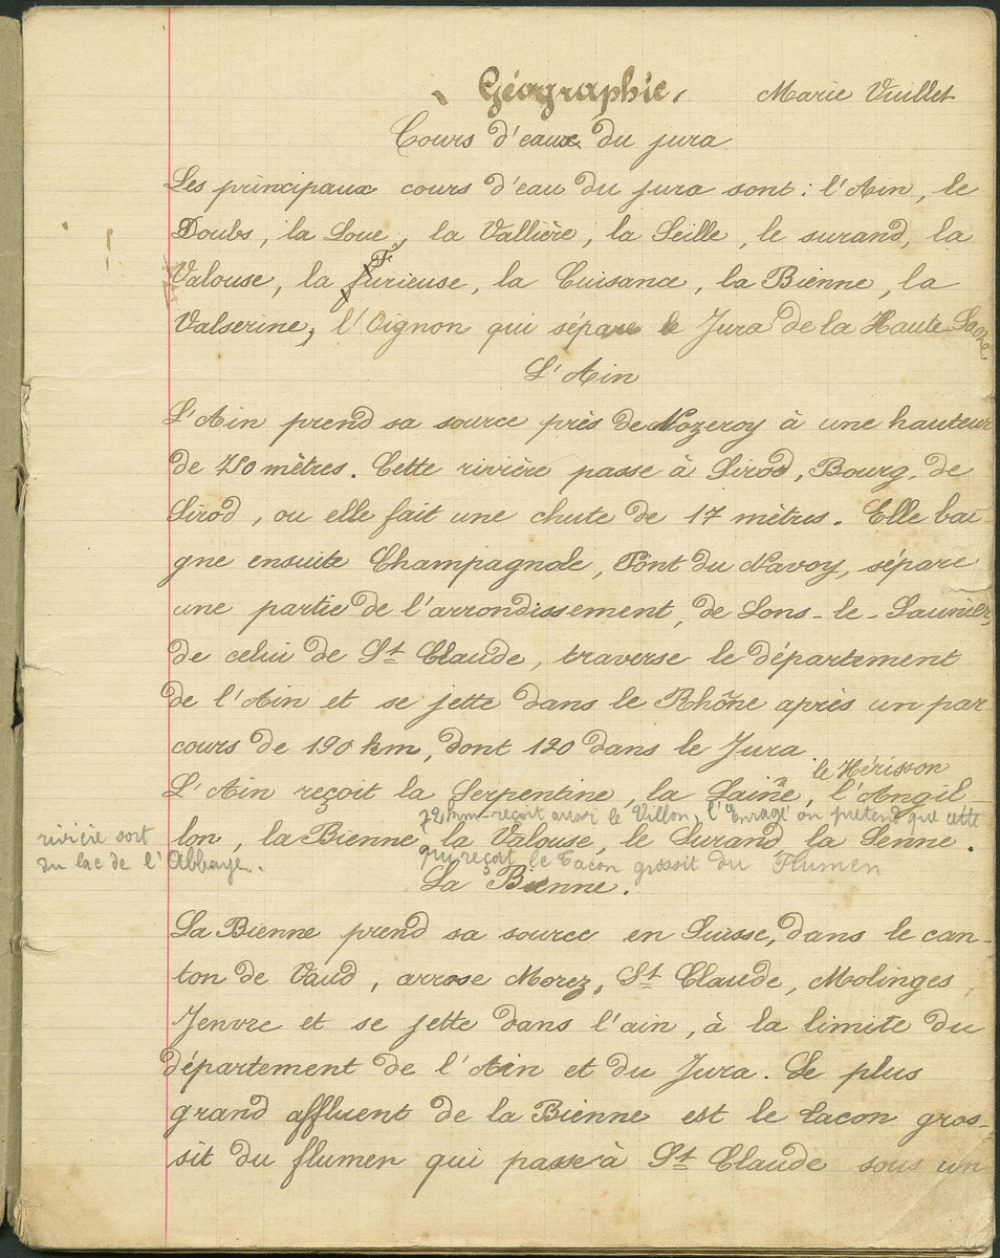 Géographie. Marie Vuillet
Cours d'eaux du jura
Les principaux cours d'eau du jura sont : l'Ain, le
Doubs, la Loue, la Vallière, la Seille, le surand, la
Valouse, la Furieuse, la Cuisance, la Bienne, la
Valserine, l'Oignon qui sépare le Jura de la Haute Saône
L'Ain
L'Ain prend sa source près de Nozeroy à une hauteur
de 750 mètres. Cette rivière passe à Sirod, Bourg, de
Sirod, ou elle fait une chute de 17 mètres. Elle bai-
gne ensuite Champagnole, Pont du Navoy, sépare
une partie de l'arrondissement, de Lons-le-Saunier,
de celui de St Claude, traverse le département
de l'Ain et se jette dans le Rhône après un par
cours de 190 km, dont 120 dans le Jura
le Hérisson
L'Ain reçoit la Serpentine, la Saine, l'Angil-
72 km reçoit aussi le Villon, l'Enragé on prétend que cette
lon, la Bienne, la Valouse, le Surand, la Senne.
rivière sort
du lac de l'Abbaye.
qui reçoit le Tacon grossit du Flumen
La Bienne.
La Bienne prend sa source en Suisse, dans le can-
ton de Vaud, arrose Morez, St Claude, Molinges,
Jenvre et se jette dans l'ain, à la limite du
département de l'Ain et du Jura. Le plus
grand affluent de la Bienne est le tacon gros-
sit du flumen qui passe à St Claude sous un